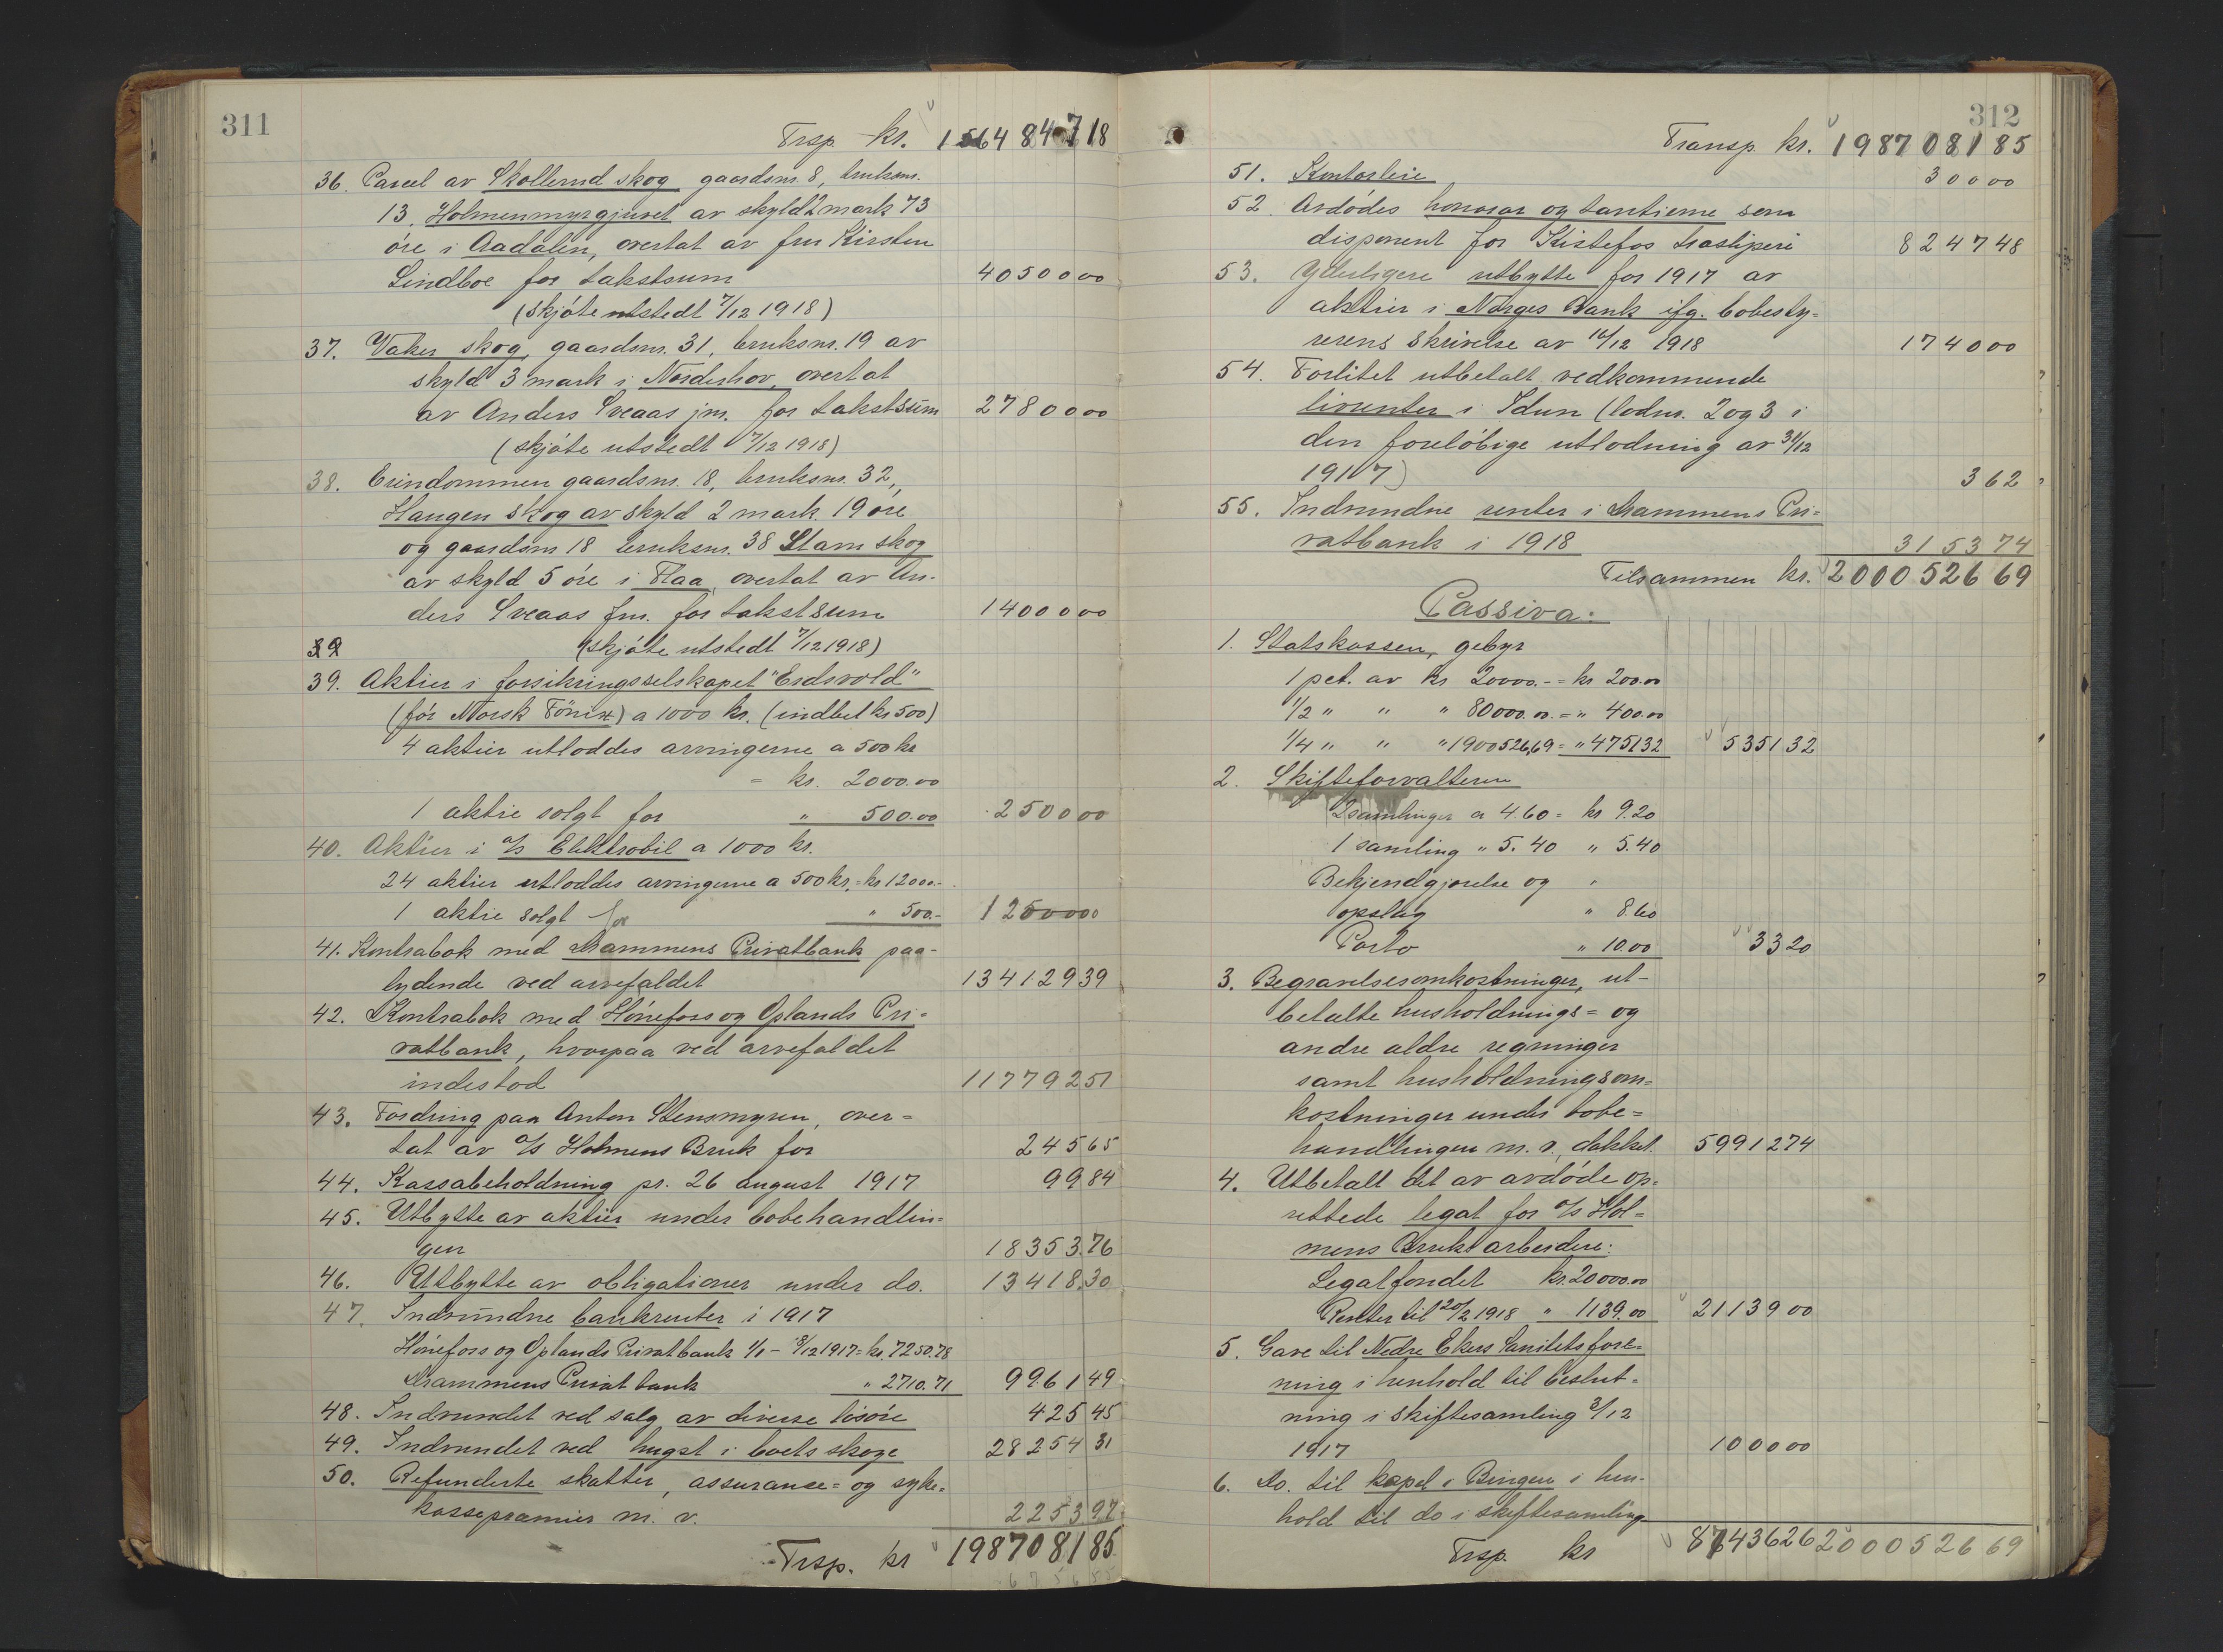 311
Trsp. kr. 1564 847 18
36. Parcel av Skollerud skog gaardsnr. 8, bruksnr.
13, Holmenmyrgjuvet av skyld 2 mark 73
øre i Aadalen, overtat av fru Kirsten
Lindboe for takstsum 40500 00
(skjøte utstedt 7/12 1918)
37. Vaker skog, gaardsnr. 31, bruksnr. 19 av
skyld 3 mark i Norderhov, overtat
av Anders Sveaas jnr. for takstsum 27800 00
(skjøte utstedt 7/12 1918)
38. Eiendommen gaardsnr. 18, bruksnr. 32,
Haugen skog av skyld 2 mark 19 øre
og gaardsnr 18 bruksnr. 38 Slam skog
av skyld 5 øre i Flaa, overtat av An-
ders Sveaas jnr. for takstsum 14000 00
39 (skjøte utstedt 7/12 1918)
39. Aktier i forsikringsselskapet "Eidsvold"
(før Norsk Fønix) a 1000 kr. (indbet kr 500)
4 aktier utloddes arvingerne a 500 kr
= kr. 2000.00
1 aktie solgt for " 500.00 2500 00
40. Aktier i a/s Elektrobil a 1000 kr.
24 aktier utloddes arvingerne a 500 kr. = kr 12000.-
1 aktie solgt for " 500.- 12500 00
41. Kontrabok med Drammens Privatbank paa-
lydende ved arvefaldet 134129 39
42. Kontrabok med Hønefoss og Oplands Pri-
vatbank, hvorpaa ved arvefaldet
indestod 117792 51
43. Fordring paa Anton Stensmyren, over-
tat av a/s Holmens Bruk for 245 65
44. Kassabeholdning pr. 26 august 1917 99 84
45. Utbytte av aktier under bobehandlin-
gen 18353.76
46. Utbytte av obligationer under do. 13418.30
47. Indvundne bankrenter i 1917
Hønefoss og Oplands Privatbank 1/1 - 31/12 1917 = kr. 7250.78
Drammens Privat bank " 2710.71 9961 49
48. Indvundet ved salg av diverse løsøre 425 45
49. Indvundet ved hugst i boets skoge 28254 31
50. Refunderte skatter, assuranse- og syke-
kassepræmier m. v. 2253 97
Trsp. kr 1987081 85
312
Transp. kr. 1987081 85
51. Kontorleie 300 00
52. Avdødes honorar og tantieme som
disponent for Kistefos træsliperi 8247 48
53. Yderligere utbytte for 1917 av
aktier i Norges Bank ifg. bobesty-
rerens skrivelse av 16/12 1918 1740 00
54. Forlitet utbetalt vedkommende
livrenter i Idun (lodnr. 2 og 3 i
den foreløbige utlodning av 31/12
1917) 3 62
55. Indvundne renter i Drammens Pri-
vatbank i 1918 3153 74
Tilsammen kr. 2000526 69
Passiva:
1. Statskassen, gebyr
1 pct. av kr 20000.- = kr 200.00
1/2 " " " 80000.00. = " 400.00
1/4 " " " 1900526,69 = " 4751 32 5351 32
2. Skifteforvalteren
2 samlinger a 4.60 = kr 9.20
1 samling " 5.40 " 5.40
Bekjendgjørelse og "
opslag " 8.60
Porto " 10.00 33 20
3. Begravelsesomkostninger, ut-
betalte husholdnings- og
andre ældre regninger
samt husholdningsom-
kostninger under bobe-
handlingen m. v., dækket 59912 74
4. Utbetalt det av avdøde op-
rettede legat for a/s Hol-
mens Bruks arbeidere:
Legatfondet kr. 20000.00
Renter til 20/2 1918 " 1139.00 21139 00
5. Gave til Nedre Ekers Sanitetsfore-
ning i henhold til beslut-
ning i skiftesamling 3/12
1917 1000 00
6. Do. til kapel i Bingen i hen-
hold til do i skiftesamling
Trsp. kr 87436 26 2000526 69